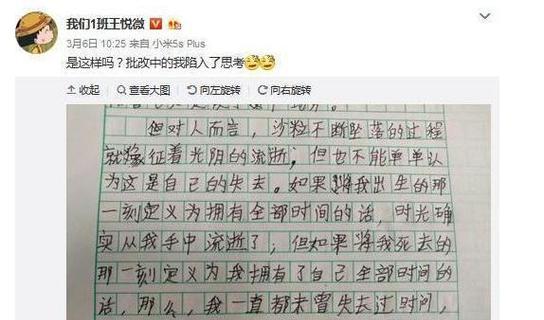 我们1班王悦微
3月6日 10:25 来自 小米5s Plus
是这样吗？批改中的我陷入了思考
收起 查看大图 向左旋转 向右旋转
但对人而言，沙粒不断坠落的过程
就像征着光阴的流逝；但也不能单单认
为这是自己的失去。如果将我出生的那
一刻定义为拥有全部时间的话，时光确
实从我手中流逝了；但如果将我死去的
那一刻定义为我拥有了自己全部时间的
话，那么，我一直都未曾失去过时间，